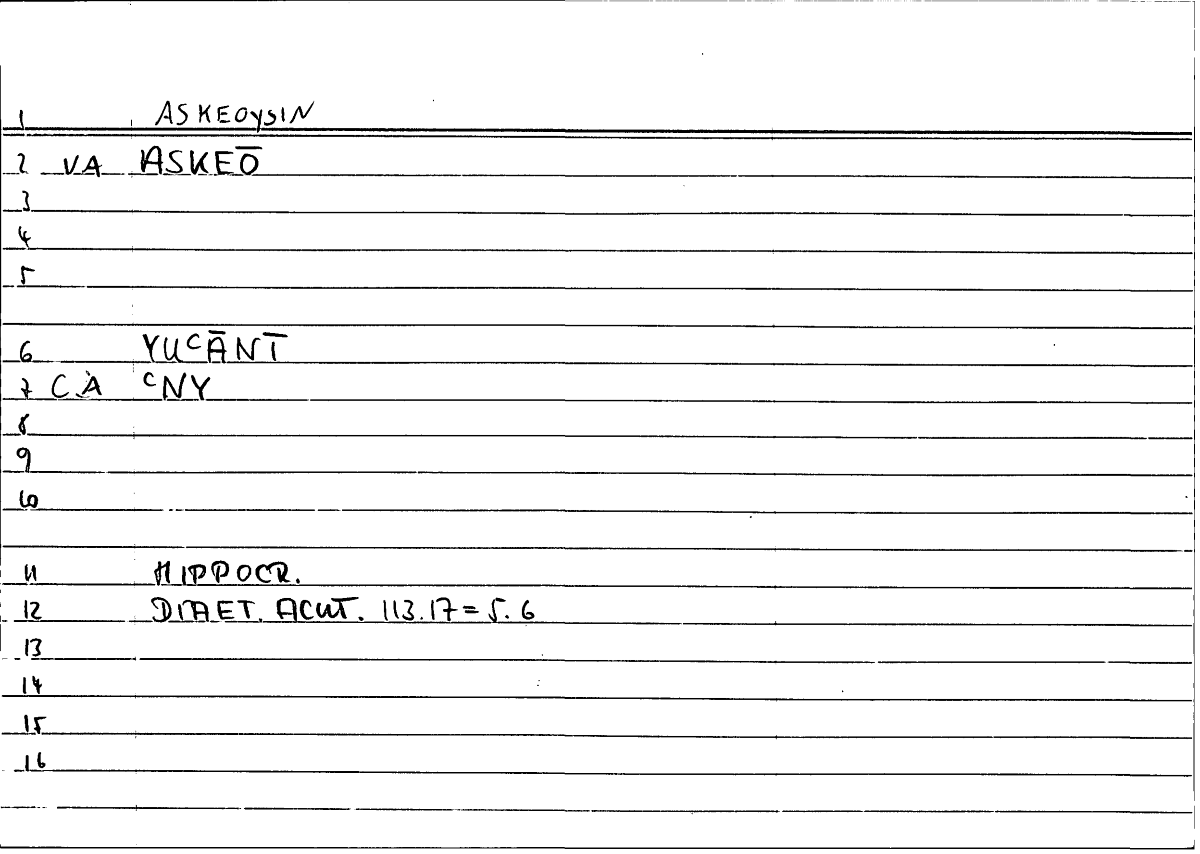 1 ASKEOYSIN
2 VA ASKEŌ
3
4
5
6 YUᶜĀNĪ
7 CȦ ᶜNY
8
9
10
11 HIPPOCR.
12 DIAET. ACUT. 113.17=5.6
13
14
15
16